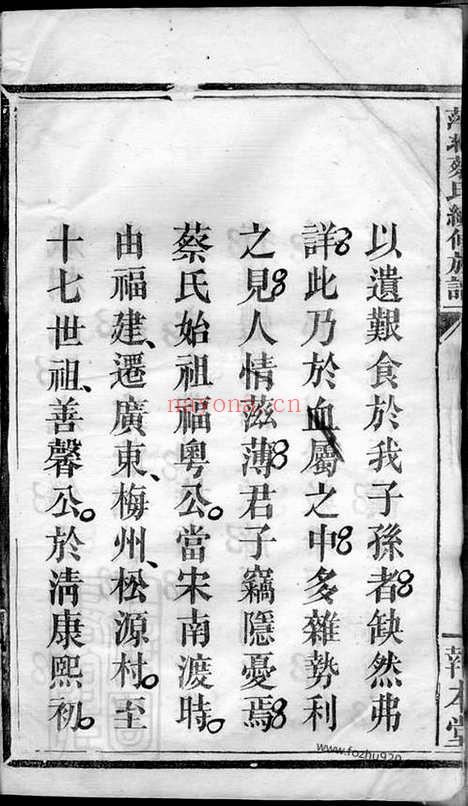 萍北蔡氏續修族譜
報本堂
以遺艱食於我子孫者缺然弗
詳此乃於血屬之中多雜勢利
之見人情滋薄君子竊隱憂焉
蔡氏始祖福粵公。當宋南渡時。
由福建、遷廣東、梅州、松源村。至
十七世祖、善馨公。於清康熙初。
nayona.cn
www.fozhu920